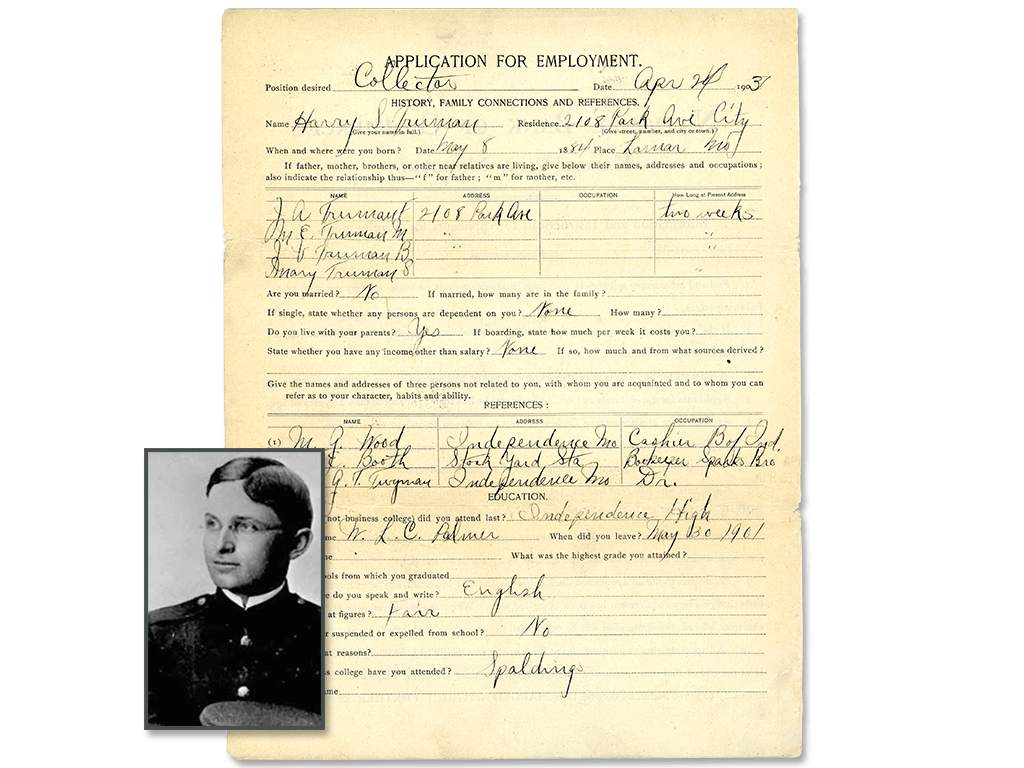 APPLICATION FOR EMPLOYMENT.
Position desired Collector Date Apr 24 1903
HISTORY, FAMILY CONNECTIONS AND REFERENCES.
Name Harry S. Truman Residence 2108 Park Ave City
(Give your name in full.) (Give street, number, and city or town.)
When and where were you born? Date May 8 1884 Place Lamar Mo
If father, mother, brothers, or other near relatives are living, give below their names, addresses and occupations;
also indicate the relationship thus—"f" for father; "m" for mother, etc.
NAME ADDRESS OCCUPATION How Long at Present Address
J A Truman f 2108 Park Ave two weeks
M E. Truman M " "
J V Truman B " "
Mary Truman S "
Are you married? No If married, how many are in the family?
If single, state whether any persons are dependent on you? None How many?
Do you live with your parents? Yes If boarding, state how much per week it costs you?
State whether you have any income other than salary? None If so, how much and from what sources derived?
Give the names and addresses of three persons not related to you, with whom you are acquainted and to whom you can
refer as to your character, habits and ability.
REFERENCES:
NAME ADDRESS OCCUPATION
(1) M. G. Wood Independence Mo Cashier B of Ind.
Booth Stock Yard Sta Bookeeper Sparks Bro
G. T. Twyman Independence Mo Dr.
EDUCATION.
(not business college) did you attend last? Independence High
me W. L. C. Palmer When did you leave? May 30 1901
ne What was the highest grade you attained?
ols from which you graduated
e do you speak and write? English
at figures? Fair
r suspended or expelled from school? No
at reasons?
ss college have you attended? Spaldings
me